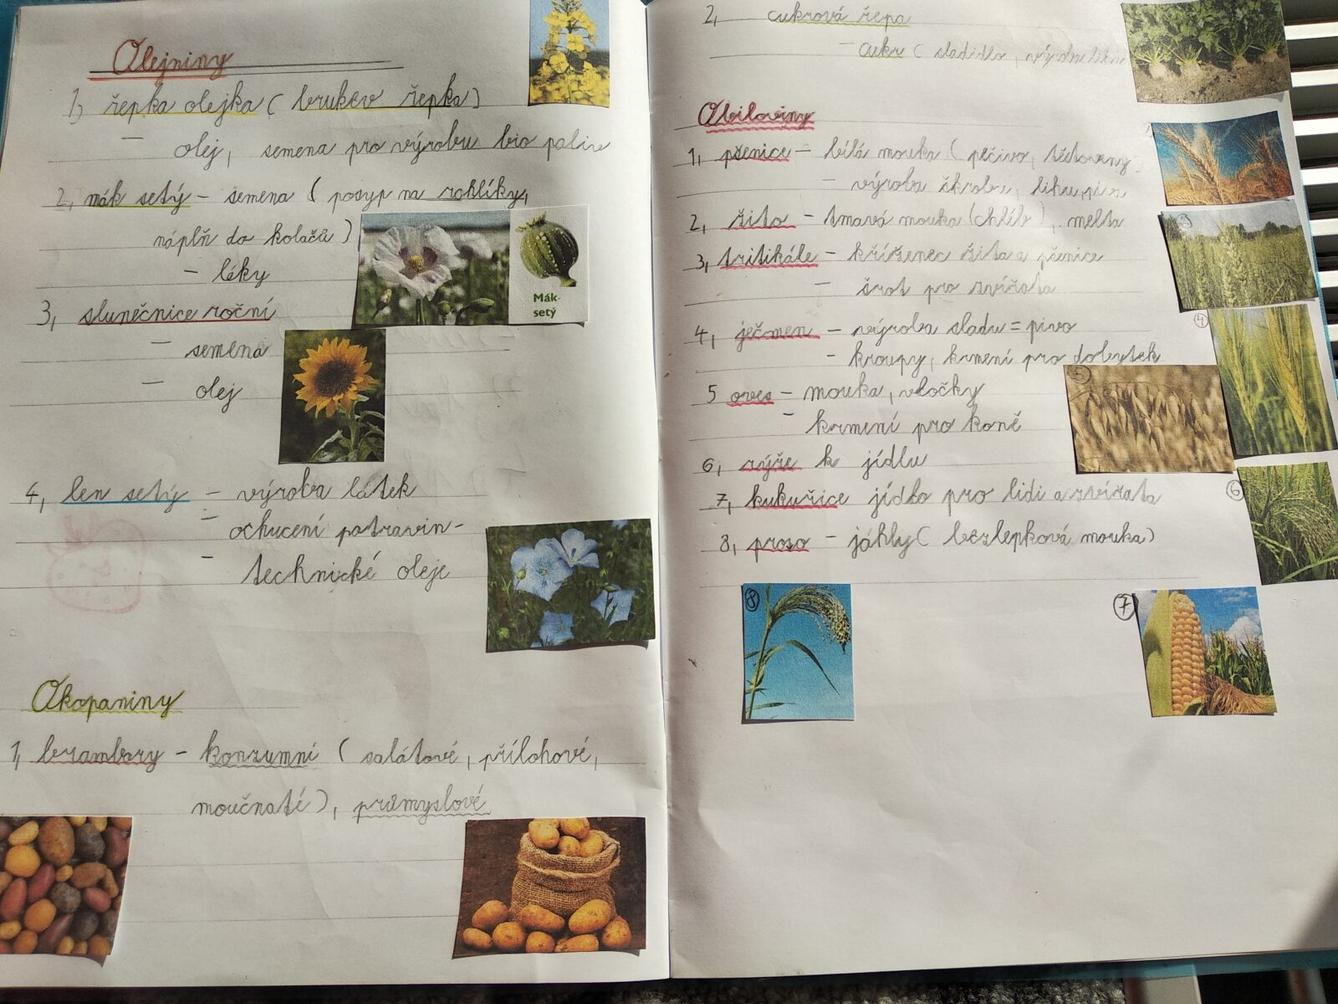 Olejniny
1, řepka olejka ( brukev řepka)
– olej, semena pro výrobu bio paliv
2, mák setý – semena ( posyp na rohlíky,
náplň do koláčů )
– léky
Mák-
setý
3, slunečnice roční
– semena
– olej
4, len setý – výroba látek
– ochucení potravin –
– technické oleje
Okopaniny
1, brambory – konzumní ( salátové, přílohové,
moučnaté), průmyslové
2, cukrová řepa
– cukr ( sladidlo, výroba lihu
Obiloviny
1, pšenice – bílá mouka ( pečivo, těstoviny
– výroba škrobu, lihu, piva
2, žito – tmavá mouka (chléb), melta
3
3, tritikále – kříženec žita a pšenice
– šrot pro zvířata
4, ječmen – výroba sladu = pivo
4
– kroupy, krmení pro dobytek
5
5 oves – mouka, vločky
– krmení pro koně
6, rýže k jídlu
6
7, kukuřice jídlo pro lidi a zvířata
8, proso – jáhly ( bezlepková mouka)
8
7